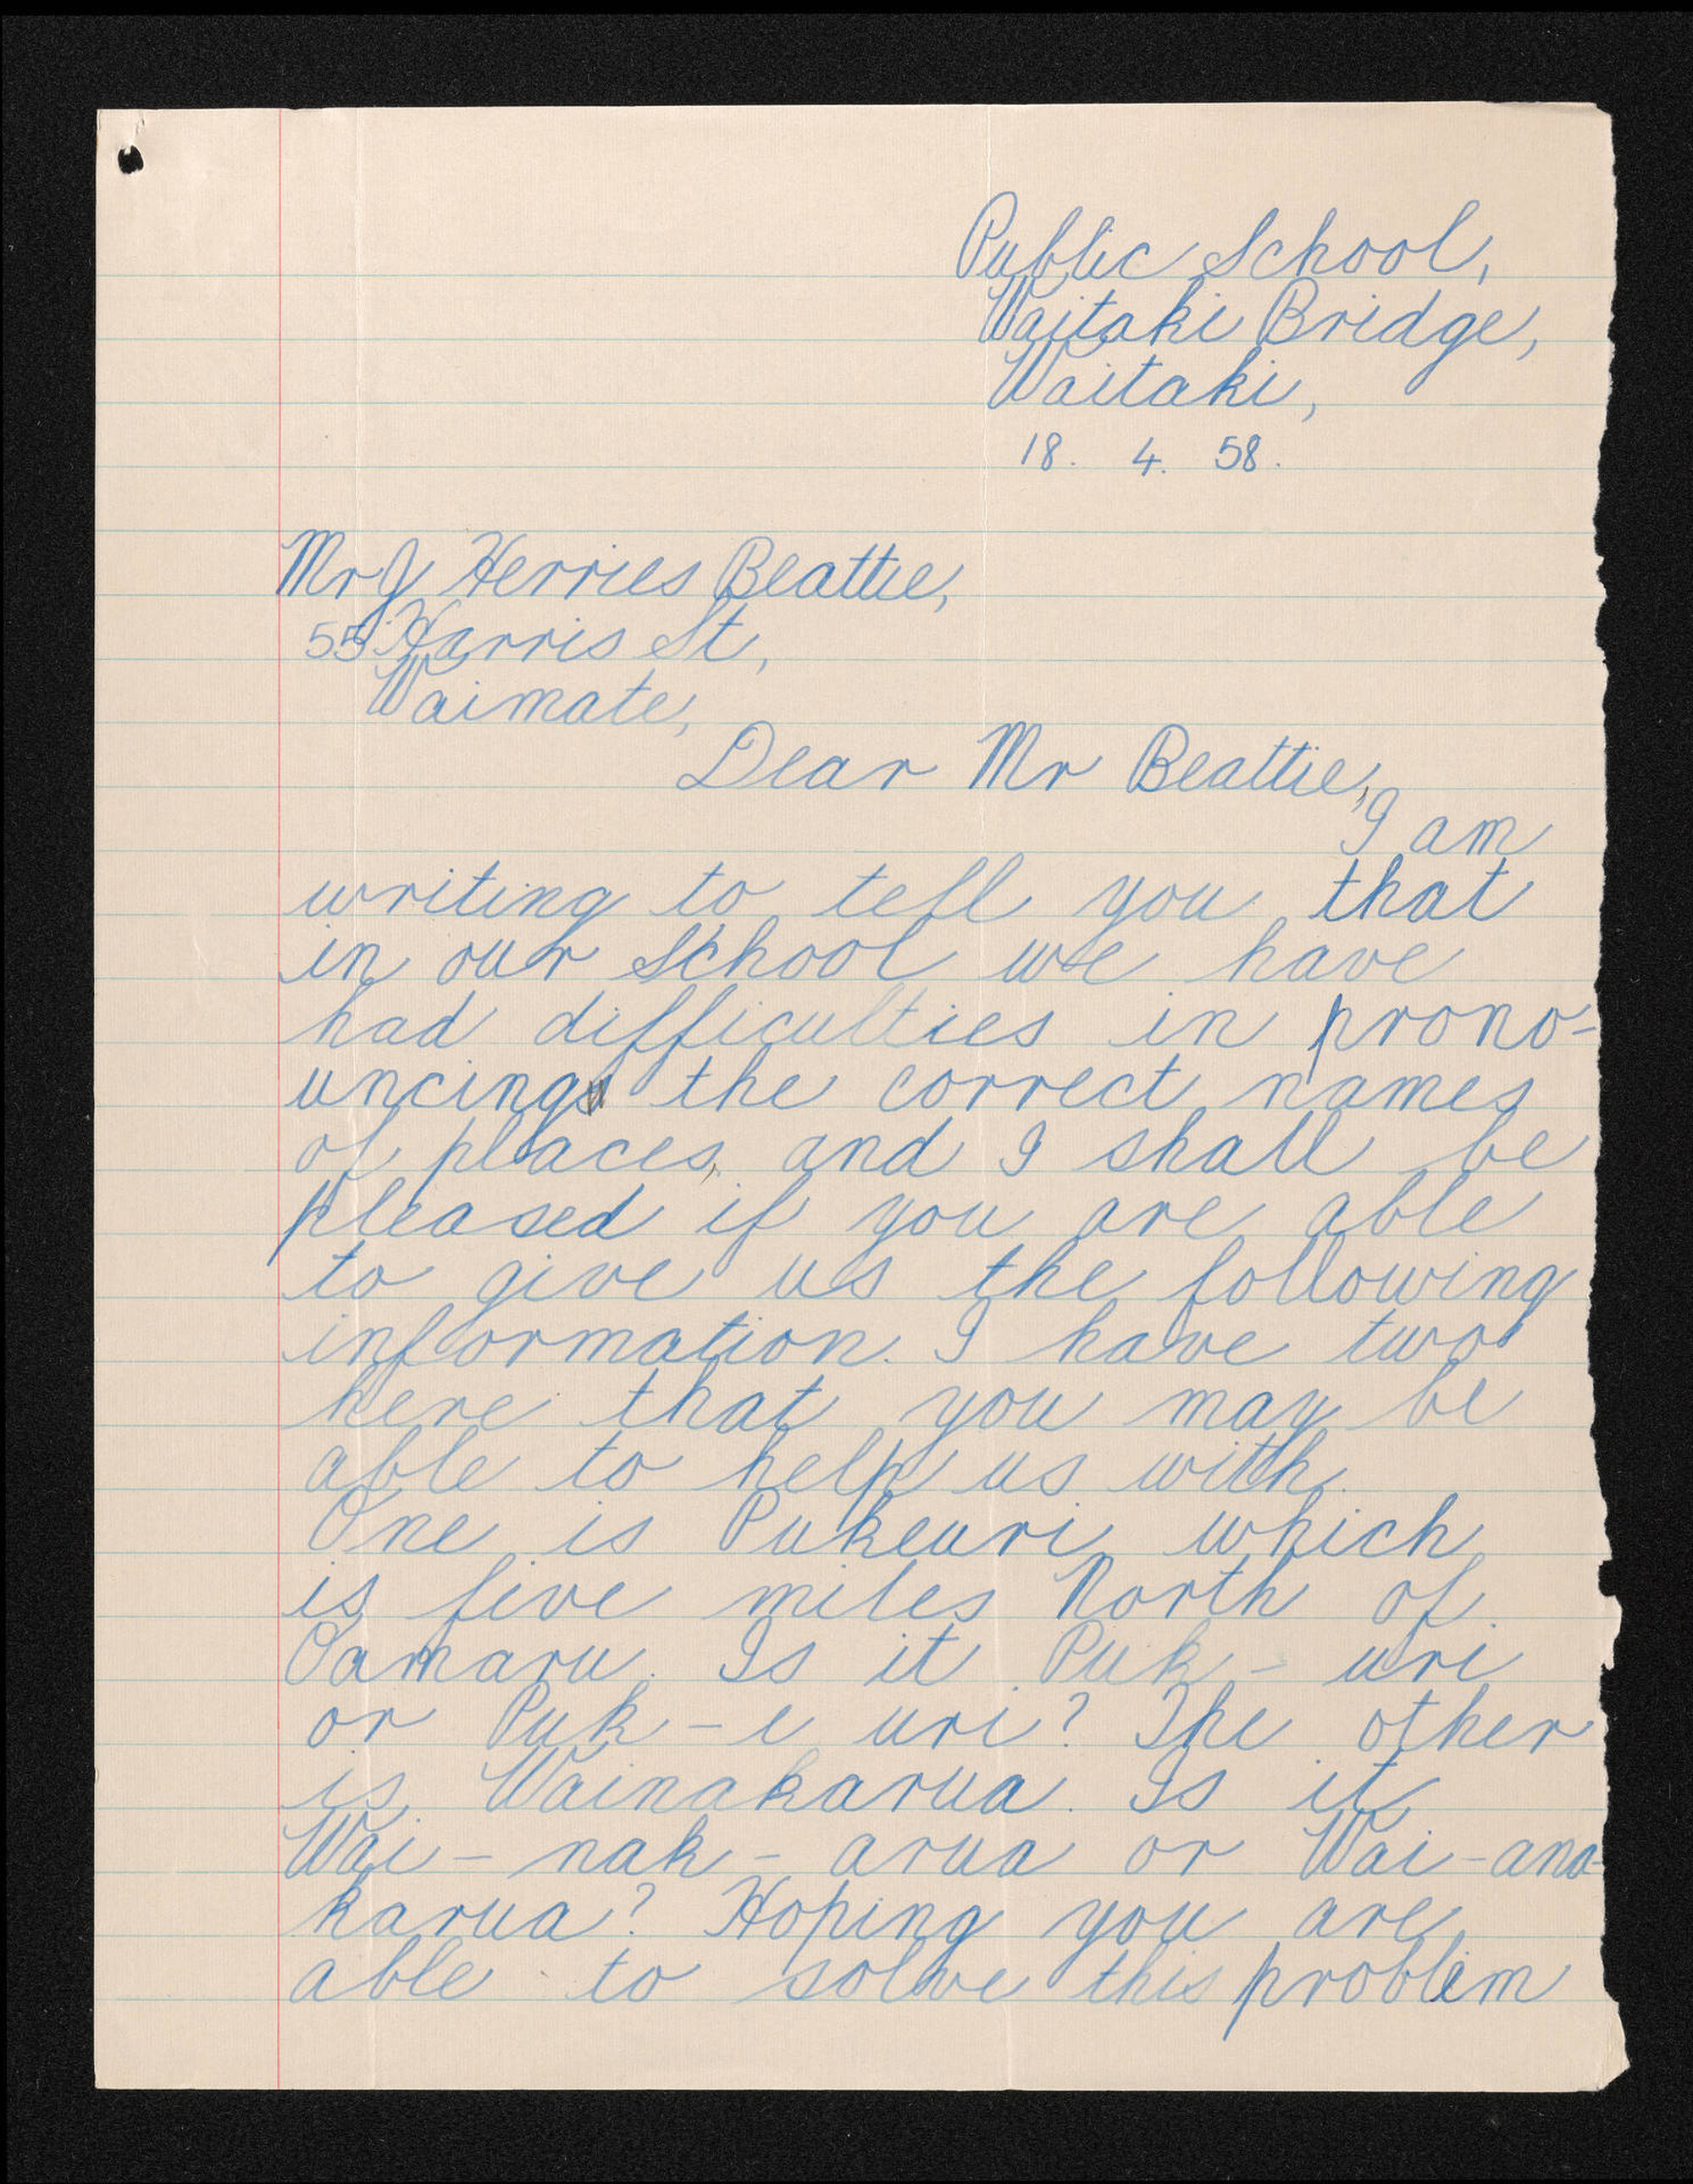 Public School,
Waitaki Bridge,
Waitaki,
18. 4. 58.
Mr J Herries Beattie,
55 Harris St,
Waimate,
Dear Mr Beattie,
I am
writing to tell you that
in our school we have
had difficulties in prono-
uncing the correct names
of places, and I shall be
pleased if you are able
to give us the following
information. I have two
here that you may be
able to help us with.
One is Pukeuri which
is five miles North of
Oamaru. Is it Puk - uri
or Puk - e uri? The other
is Wainakarua. Is it
Wai - nak - arua or Wai - ana-
karua? Hoping you are
able to solve this problem